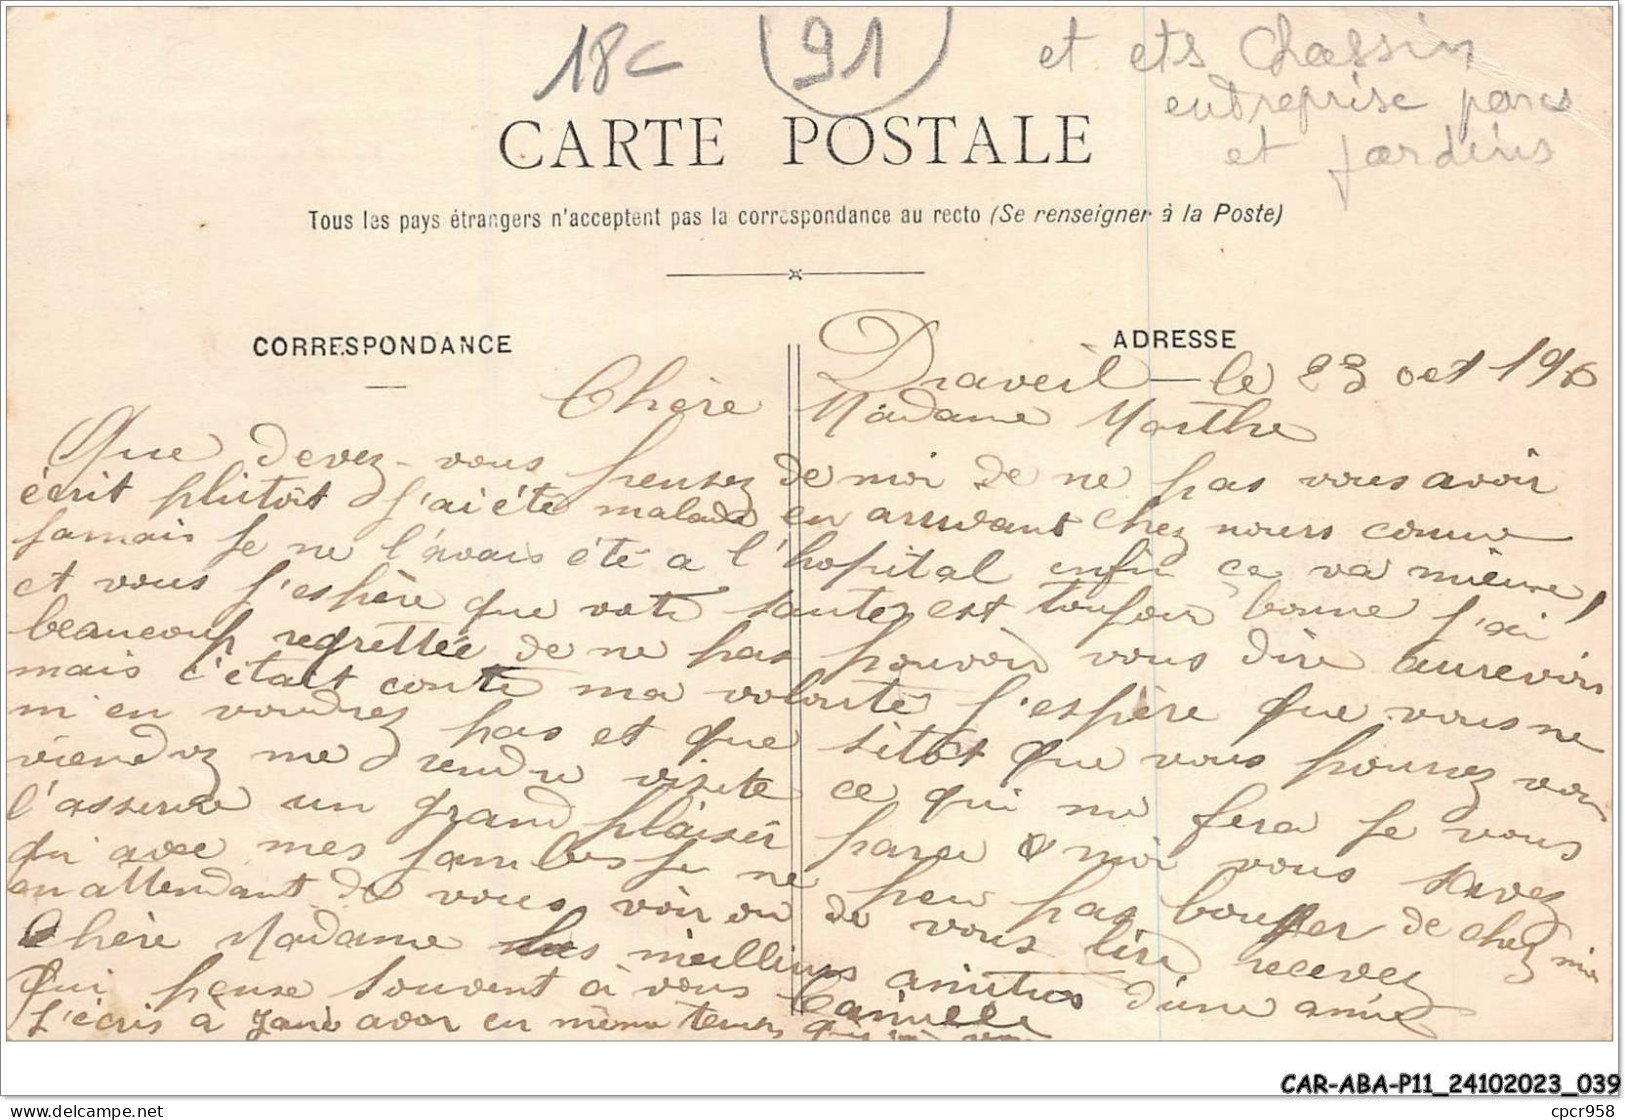 18c
91
et ets Chassin
entreprise parcs
et Jardins
CARTE POSTALE
Tous les pays étrangers n'acceptent pas la correspondance au recto (Se renseigner à la Poste)
CORRESPONDANCE
ADRESSE
Draveil - le 23 oct 196
Chère Madame Marthe
Que devez-vous pensez de moi de ne pas vous avoir
écrit plutoît J'ai été malade en arrivant chez nours comme
jamais Je ne l'avais été a l'hopital enfin ça va mieux,
et vous J'espère que votre santez est toujour bonne J'ai
beaucoup regrettée de ne pas pouvoir vous dire aurevoir
mais c'était contre ma volonté J'espère que vous ne
m'en voudrez pas et que sitôt que vous pourrez vous
viendrez me rendre visite ce qui me fera Je vous
l'assure un grand plaisir parce moi vous savez
qu'avec mes jambes Je ne peu pas bouger de chez moi
en attendant de vous voir ou de vous lire recevez
Chère Madame les meilleurs amitiés d'une amie
Qui pense souvent à vous Camille
J'écris à en même temps
CAR-ABA-P11_24102023_039
www.delcampe.net
cpcr958